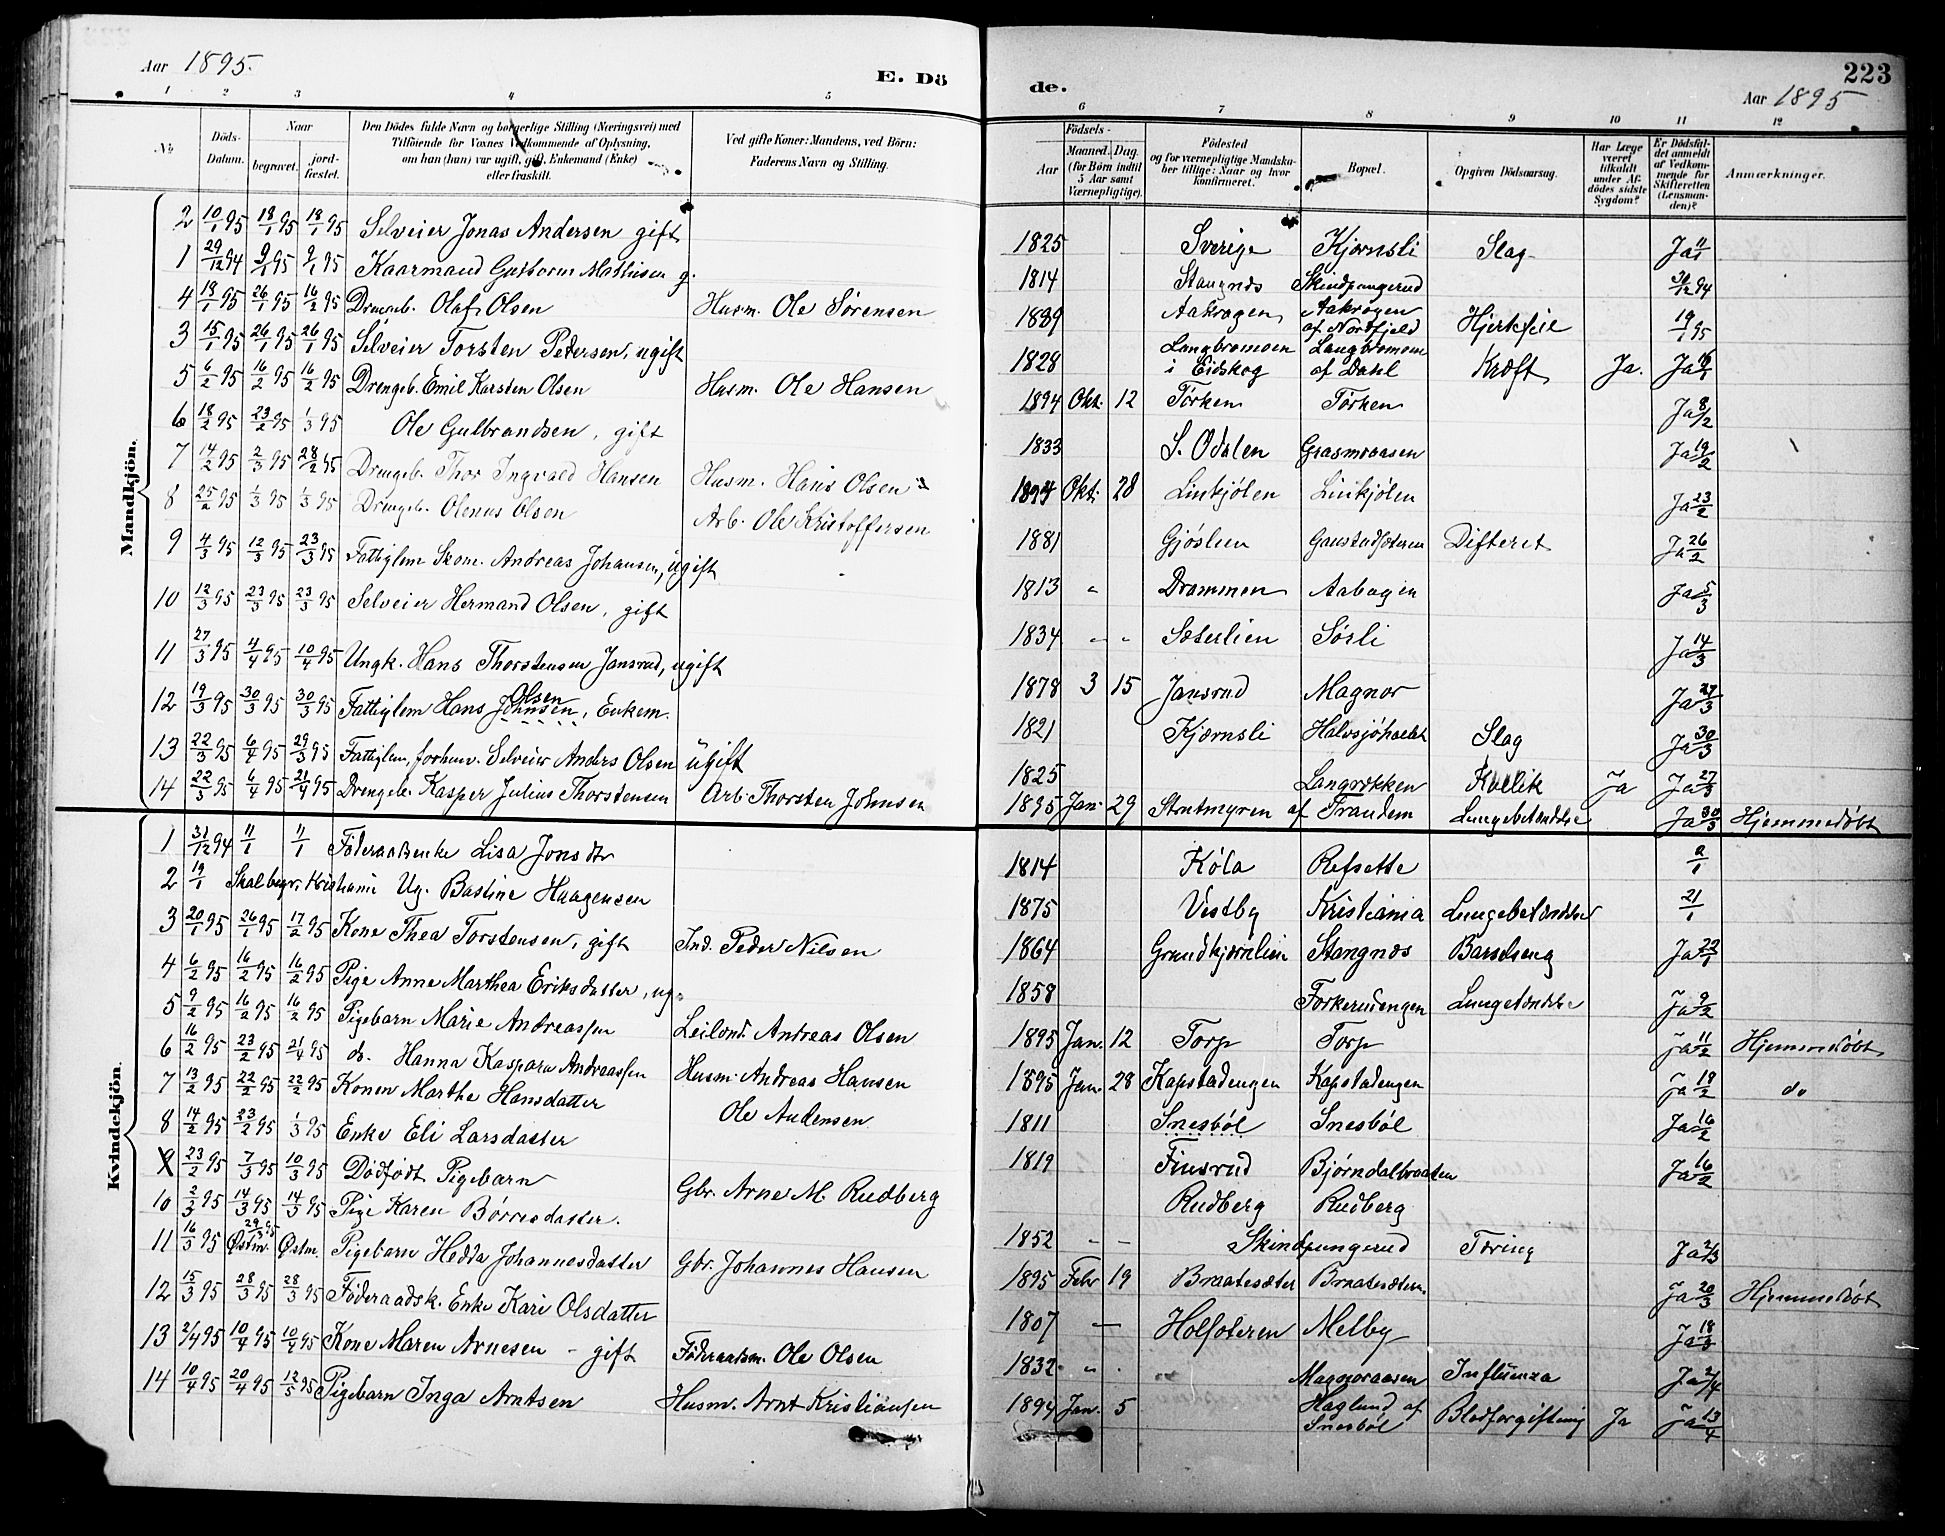 Aar 1895.
E. Dö
de.
223
Aar 1895
1 2 3 4 5 6 7 8 9 10 11 12
No.
Döds-Datum.
Naar
begravet.
jordfæstet.
Den Dödes fulde Navn og borgerlige Stilling (Næringsvei) med
Tilföiende for Voxnes Vedkommende af Oplysning,
om han (hun) var ugift, gift, Enkemand (Enke)
eller fraskilt.
Ved gifte Koner: Mandens, ved Börn:
Faderens Navn og Stilling.
Födsels-
Aar
Maaned. Dag.
(for Börn indtil
5 Aar samt
Værnepligtige).
Födested
og for værnepligtige Mandska-
ber tillige: Naar og hvor
konfirmeret.
Bopæl.
Opgiven Dödsaarsag.
Har Læge
været
tilkaldt
under Af-
dödes sidste
Sygdom?
Er Dödsfal-
det anmeldt
af Vedkom-
mende for
Skifteretten
(Lensman-
den)?
Anmærkninger.
Mandkjön.
2 10/1 95 18/1 95 18/1 95 Selveier Jonas Andersen gift 1825 Sverige Kjørnsli Slag Ja 11/1
1 29/12 94 9/1 95 9/1 95 Kaarmand Gulborm Mathisen g. 1814 Stangnes Skindpungerud 31/12 94
4 18/1 95 26/1 95 16/2 95 Drengeb. Olaf Olsen Husm. Ole Sørensen 1889 Aakrogen Aakrogen af Nordfjeld Hjertefeil 19/1 95
3 15/1 95 26/1 95 26/1 95 Selveier Torsten Pedersen, ugift 1828 Langbromoen i Eidskog Langbromoen af Dahl Kræft Ja. Ja 16/1
5 6/2 95 16/2 95 16/2 95 Drengeb. Emil Karsten Olsen Husm. Ole Hansen 1894 Okt. 12 Tørken Tørken Ja 8/2
6 18/2 95 23/2 95 1/3 95 Ole Gulbrandsen, gift 1833 S. Odalen Grasmoaasen Ja 19/2
7 14/2 95 2/3 95 28/2 95 Drengeb. Thor Ingvald Hansen Husm. Hans Olsen 1894 Okt. 28 Linkjølen Linkjølen Ja 23/2
8 25/2 95 1/3 95 1/3 95 Drengeb. Olenus Olsen Arb. Ole Kristoffersen 1881 Gjøslien Gaustadsæteren Difterit Ja 26/2
9 4/3 95 12/3 95 23/3 95 Fattiglem Skom. Andreas Johansen, ugift 1813 " Drammen Aabogen Ja 5/3
10 12/3 95 23/3 95 23/3 95 Selveier Hermand Olsen, gift 1834 " " Sæterlien Sørli Ja 14/3
11 27/3 95 4/4 95 10/4 95 Ungk. Hans Thorstensen Jansrud, ugift 1878 3 15 Jansrud Magnor Ja 27/3
12 19/3 95 30/3 95 30/3 95 Fattiglem Hans Johnsen Olsen, Enkem. 1821 Kjærnsli Halvsjøhaelet Slag Ja 30/3
13 22/3 95 6/4 95 29/3 95 Fattiglem, forhenv. Selveier Anders Olsen ugift 1825 Langrækken Kollik Ja Ja 27/3
14 22/3 95 6/4 95 21/4 95 Drengeb. Kasper Julius Thorstensen Arb. Thorsten Johnsen 1895 Jan. 29 Strutmyren af Trandem Lungebetændelse Ja 30/3 Hjemmedøbt
Kvindekjön.
1 31/12 94 11/1 11/1 Føderaadsenke Lisa Jonsdtr 1814 Køla Refsette 2/1
2 19/1 Skal begr. Kristiania Ug. Bastine Haagensen 1875 Vestby Kristiania Lungebetændelse 21/1
3 20/1 95 26/1 95 17/2 95 Kone Thea Torstensen, gift Ind. Peder Nilsen 1864 Grundkjærnlien Stangnes Barselseng Ja 22/1
4 6/2 95 16/2 95 16/2 95 Pige Anne Marthea Eriksdatter, ug. 1858 Forkerudengen Lungebetændelse Ja 9/2
5 9/2 95 16/2 95 16/2 95 Pigebarn Marie Andreassen Leilænd. Andreas Olsen 1895 Jan. 12 Torp Torp Ja 11/2 Hjemmedøbt
6 16/2 95 23/2 95 21/4 95 do. Hanna Kaspara Andreassen Husm. Andreas Hansen 1895 Jan. 28 Kapstadengen Kapstadengen Ja 18/2 do
7 13/2 95 22/2 95 22/2 95 Konen Marthe Hansdatter Ole Andersen 1811 Snesbøl Snesbøl Ja 16/2
8 14/2 95 23/2 95 1/3 95 Enke Eli Larsdatter 1819 Finsrud Bjørndalbraaten Ja 16/2
9 23/2 95 7/3 95 10/3 95 Dødfødt Pigebarn Gbr. Arne M. Rudberg Rudberg Rudberg
10 2/3 95 14/3 95 14/3 95 Pige Karen Børresdatter. 1852 " " Skindpungerud Tæring Ja 2/3
11 16/3 95 29/3 95 Østm. Østm. Pigebarn Hedda Johannesdatter Gbr. Johannes Hansen 1895 Febr 19 Braatesæter Braatesæteren Ja 20/3 Hjemmedøbt
12 15/3 95 28/3 95 28/3 95 Føderaadsk. Enke Kari Olsdatter 1807 — Holfoteren Melby Ja 18/3
13 2/4 95 10/4 95 10/4 95 Kone Maren Arnesen - gift Føderaadsm. Ole Olsen 1832 " Magnoraasen Influenza Ja 2/4
14 10/4 95 20/4 95 12/5 95 Pigebarn Inga Arntsen Husm. Arnt Kristiansen 1894 Jan. 5 Haglund af Snesbøl Blodforgiftning Ja Ja 13/4